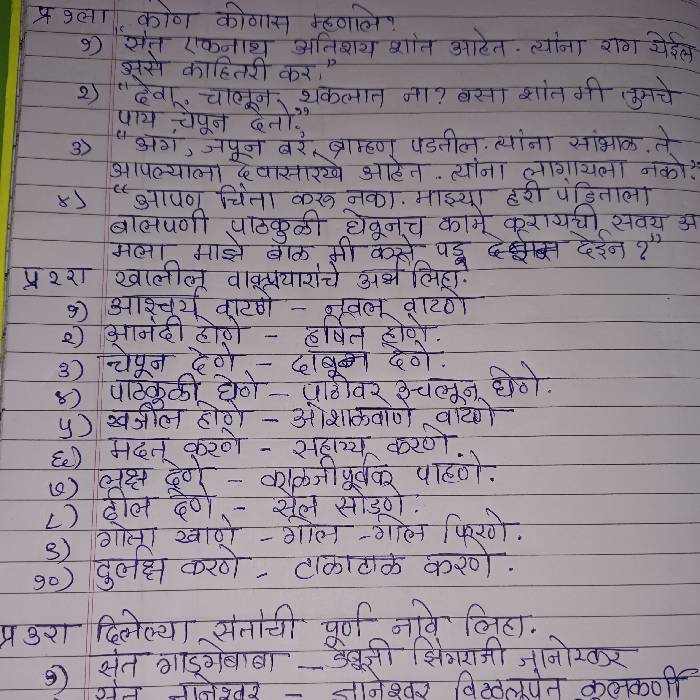 प्र १ला कोण कोणास म्हणाले?
१) "संत एकनाथ अतिशय शांत आहेत. त्यांना राग येईल
असे काहितरी कर."
२) "देवा, चालून थकलात ना? बसा शांत मी तुमचे
पाय चेपून देतो."
३) "अगं, जपून बरं, ब्राम्हण पडतील. त्यांना सांभाळ. ते
आपल्याला देवासारखे आहेत. त्यांना लागायला नको."
४) "आपण चिंता करू नका. माझ्या हरी पंडिताला
बालपणी पाठकुळी घेवूनच कामे करायची सवय अ
मला माझे बाळ मी कसे पडू देईन?"
प्र २रा खालील वाक्प्रचारांचे अर्थ लिहा.
१) आश्चर्य वाटणे - नवल वाटणे
२) आनंदी होणे - हर्षित होणे.
३) चेपून देणे - दाबून देणे.
४) पाठकुळी घेणे - पाठीवर उचलून घेणे.
५) खजील होणे - ओशाळवाणे वाटणे
६) मदत करणे - सहाय्य करणे.
७) लक्ष देणे - काळजीपूर्वक पाहणे.
८) ढील देणे - सैल सोडणे.
९) गोता खाणे - गोल-गोल फिरणे.
१०) दुर्लक्ष करणे - टाळाटाळ करणे.
प्र ३रा दिलेल्या संतांची पूर्ण नावे लिहा.
१) संत गाडगेबाबा - डेबूजी झिंगराजी जानोरकर
संत ज्ञानेश्वर - ज्ञानेश्वर विठ्ठलपंत कुलकर्णी